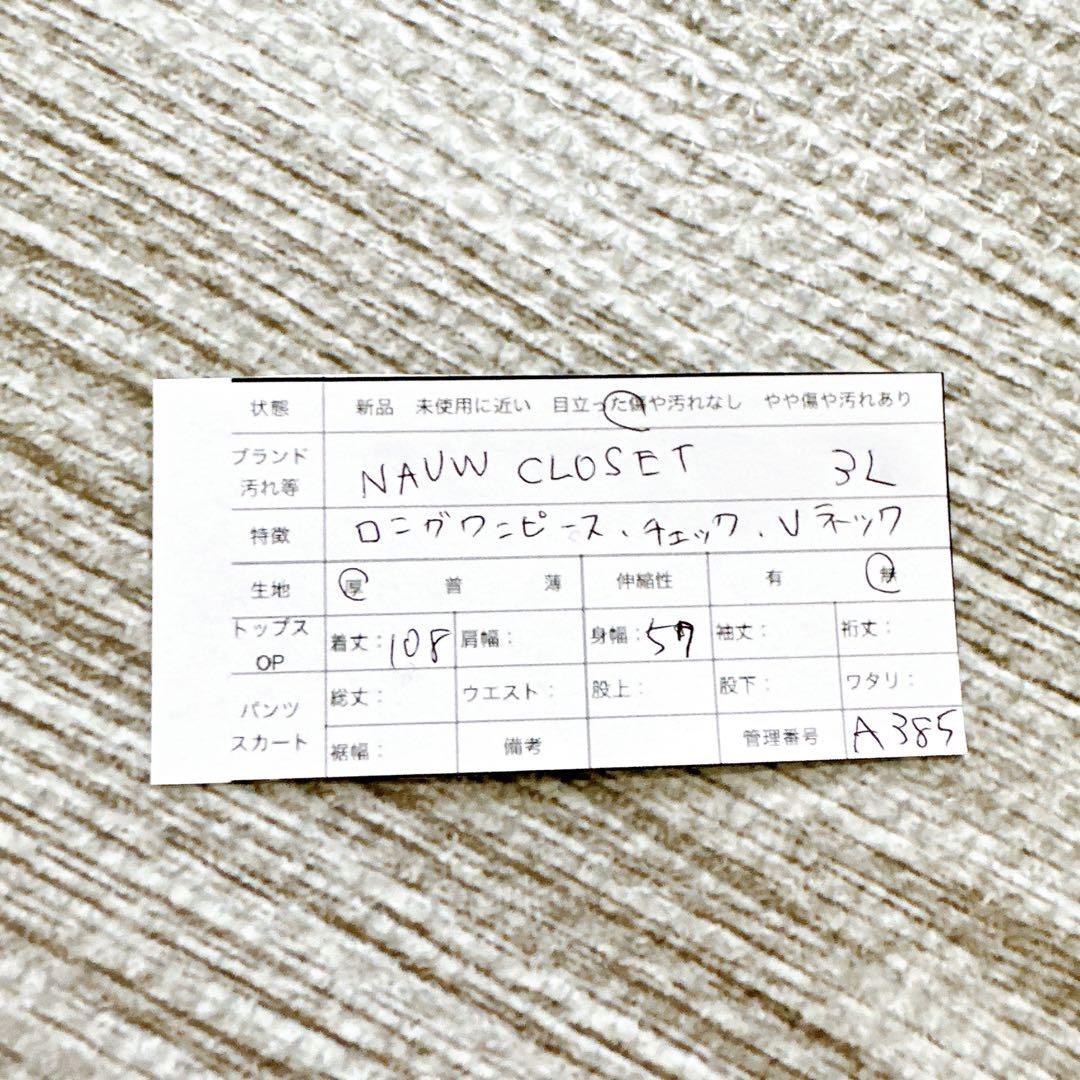 状態 新品 未使用に近い 目立った傷や汚れなし やや傷や汚れあり
ブランド
汚れ等 NAUW CLOSET 3L
特徴 ロングワンピース、チェック、Vネック
生地 厚 普 薄 伸縮性 有 無
トップス
OP 着丈: 108 肩幅: 身幅: 57 袖丈: 裄丈:
総丈: ウエスト: 股上: 股下: ワタリ:
パンツ
スカート 裾幅: 備考 管理番号 A385